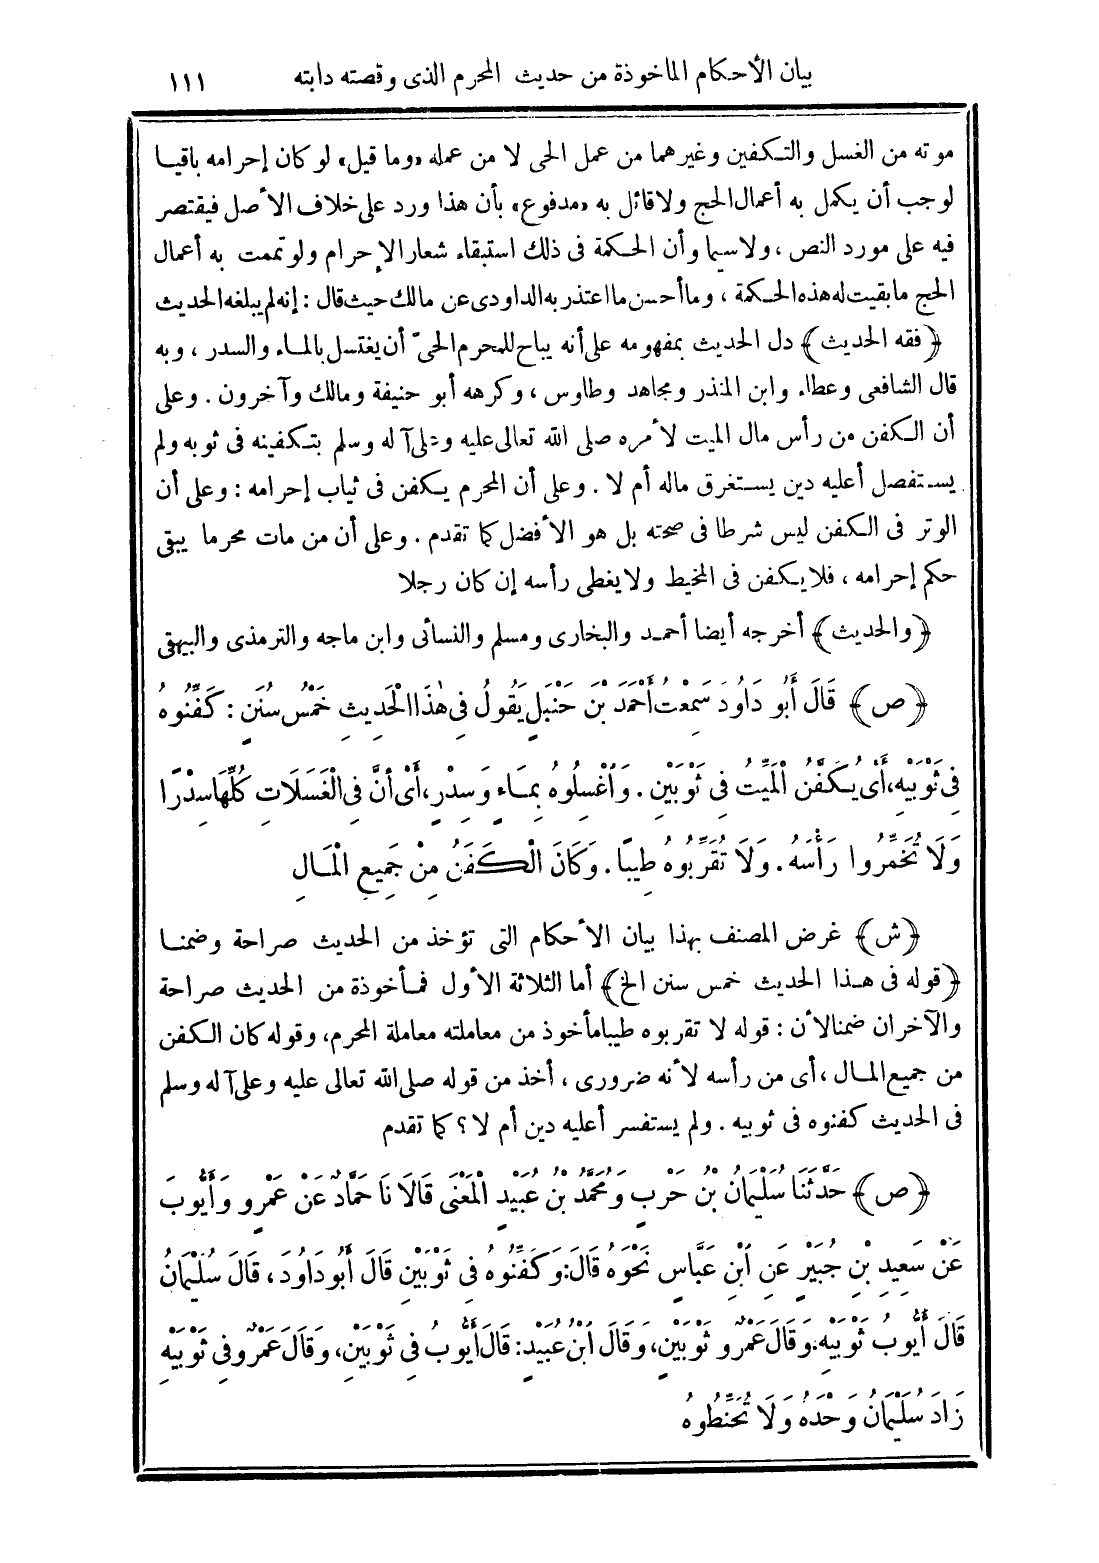 بيان الأحكام المأخوذة من حديث المحرم الذى وقصته دابته ١١١
موته من الغسل والتكفين وغيرهما من عمل الحى لا من عمله «وما قيل» لو كان إحرامه باقيا
لوجب أن يكمل به أعمال الحج ولا قائل به «مدفوع» بأن هذا ورد على خلاف الأصل فيقتصر
فيه على مورد النص ، ولا سيما وأن الحكمة فى ذلك استبقاء شعار الإحرام ولو تممت به أعمال
الحج ما بقيت له هذه الحكمة ، وما أحسن ما اعتذر به الداودى عن مالك حيث قال : إنه لم يبلغه الحديث
﴿فقه الحديث﴾ دل الحديث بمفهومه على أنه يباح للمحرم الحىّ أن يغتسل بالماء والسدر ، وبه
قال الشافعى وعطاء وابن المنذر ومجاهد وطاوس ، وكرهه أبو حنيفة ومالك وآخرون . وعلى
أن الكفن من رأس مال الميت لأمره صلى الله تعالى عليه وعلى آله وسلم بتكفينه فى ثوبه ولم
يستفصل أعليه دين يستغرق ماله أم لا . وعلى أن المحرم يكفن فى ثياب إحرامه : وعلى أن
الوتر فى الكفن ليس شرطا فى صحته بل هو الأفضل كما تقدم . وعلى أن من مات محرما يبقى
حكم إحرامه ، فلا يكفن فى المخيط ولا يغطى رأسه إن كان رجلا
﴿والحديث﴾ أخرجه أيضا أحمد والبخارى ومسلم والنسائى وابن ماجه والترمذى والبيهقى
﴿ص﴾ قَالَ أَبُو دَاوُدَ سَمِعْتُ أَحْمَدَ بْنَ حَنْبَلٍ يَقُولُ فِى هٰذَا الْحَدِيثِ خَمْسُ سُنَنٍ : كَفِّنُوهُ
فِى ثَوْبَيْهِ، أَىْ يُكَفَّنُ الْمَيِّتُ فِى ثَوْبَيْنِ . وَاغْسِلُوهُ بِمَاءٍ وَسِدْرٍ، أَىْ أَنَّ فِى الْغَسَلَاتِ كُلِّهَا سِدْرًا
وَلَا تُخَمِّرُوا رَأْسَهُ . وَلَا تُقَرِّبُوهُ طِيبًا . وَكَانَ الْكَفَنُ مِنْ جَمِيعِ الْمَالِ
﴿ش﴾ غرض المصنف بهذا بيان الأحكام التى تؤخذ من الحديث صراحة وضمنا
﴿قوله فى هذا الحديث خمس سنن الخ﴾ أما الثلاثة الأول فمأخوذة من الحديث صراحة
والآخران ضمنا لأن : قوله لا تقربوه طيبا مأخوذ من معاملته معاملة المحرم، وقوله كان الكفن
من جميع المال ، أى من رأسه لأنه ضرورى ، أخذ من قوله صلى الله تعالى عليه وعلى آله وسلم
فى الحديث كفنوه فى ثوبيه . ولم يستفسر أعليه دين أم لا ؟ كما تقدم
﴿ص﴾ حَدَّثَنَا سُلَيْمَانُ بْنُ حَرْبٍ وَمُحَمَّدُ بْنُ عُبَيْدٍ الْمَعْنَى قَالَا نَا حَمَّادٌ عَنْ عَمْرٍو وَأَيُّوبَ
عَنْ سَعِيدِ بْنِ جُبَيْرٍ عَنِ ابْنِ عَبَّاسٍ نَحْوَهُ قَالَ: وَكَفِّنُوهُ فِى ثَوْبَيْنِ قَالَ أَبُو دَاوُدَ ، قَالَ سُلَيْمَانُ
قَالَ أَيُّوبُ ثَوْبَيْهِ. وَقَالَ عَمْرٌو ثَوْبَيْنِ، وَقَالَ ابْنُ عُبَيْدٍ: قَالَ أَيُّوبُ فِى ثَوْبَيْنِ، وَقَالَ عَمْرٌو فِى ثَوْبَيْهِ
زَادَ سُلَيْمَانُ وَحْدَهُ وَلَا تُحَنِّطُوهُ